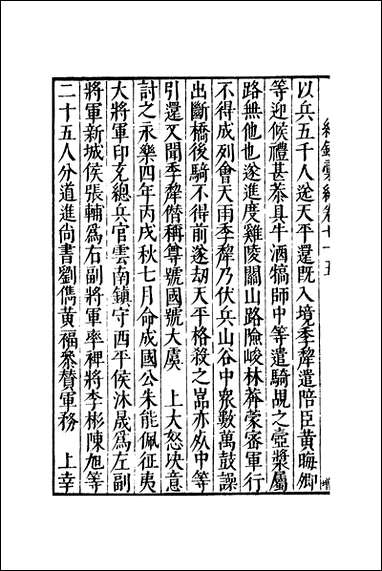 以兵五千人送天平還既入境季犛遣陪臣黃晦卿
等迎候禮甚恭具牛酒犒師中等遣騎覘之壺漿屬
路無他也遂進度雞陵關山路險峻林莽蒙密軍行
不得成列會天雨季犛乃伏兵山谷中眾數萬鼓譟
出斷橋後騎不得前遂劫天平格殺之嵓亦死中等
引還又聞季犛僭稱尊號國號大虞　上大怒決意
討之永樂四年丙戌秋七月命成國公朱能佩征夷
大將軍印充總兵官雲南鎮守西平侯沐晟為左副
將軍新城侯張輔為右副將軍率裨將李彬陳旭等
二十五人分道進尚書劉儁黃福叅贊軍務　上幸